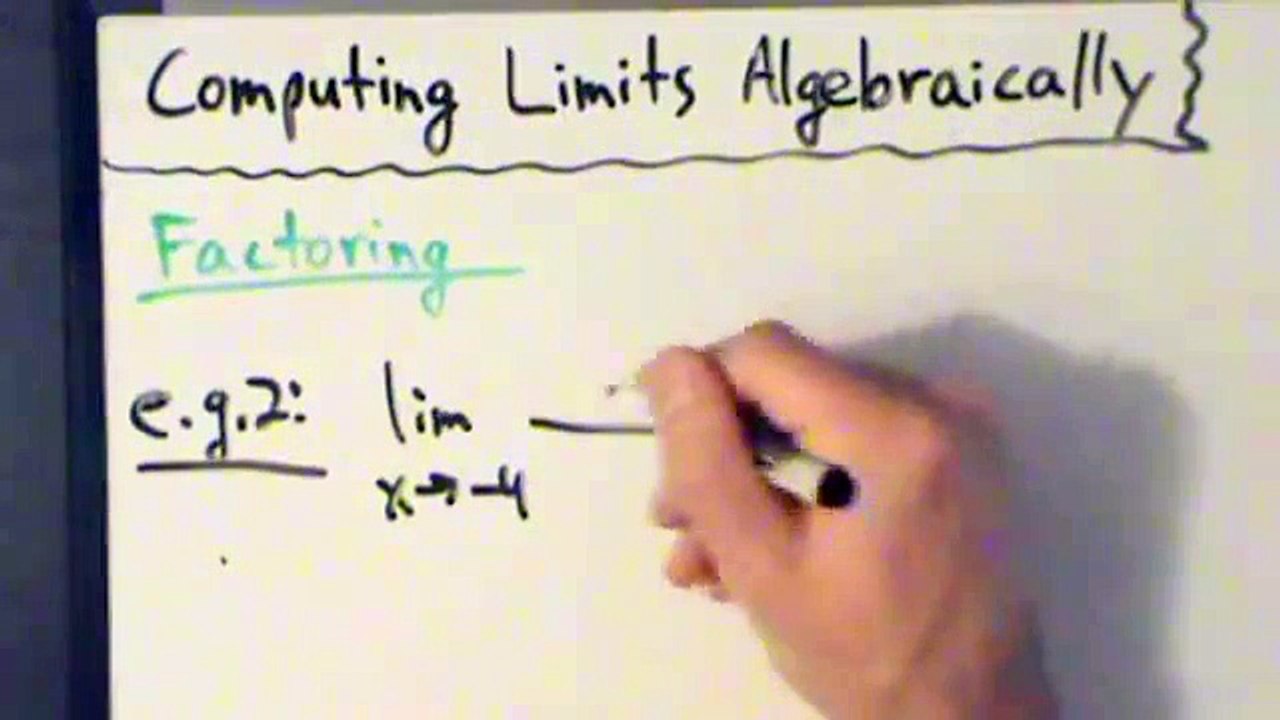 Computing Limits Algebraically
Factoring
e.g.2: lim
x→-4